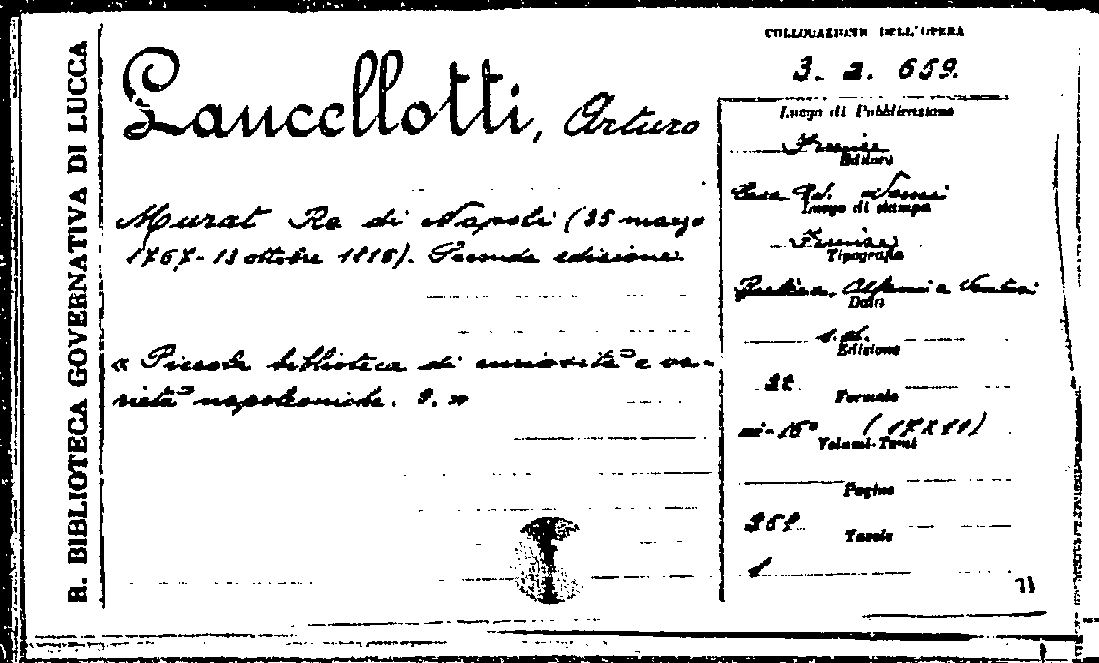 R. BIBLIOTECA GOVERNATIVA DI LUCCA
COLLOCAZIONE DELL'OPERA
3. 2. 659.
Lancellotti, Arturo
Murat Re di Napoli (25 marzo
1767-13 ottobre 1815). Seconda edizione.
« Piccola biblioteca di curiosità e va-
rietà napoleoniche. 9. »
Luogo di Pubblicazione
Firenze
Editore
Casa Ed. Nemi
Luogo di stampa
Firenze
Tipografia
Alfani e Venturi
Data
s.d.
Edizione
2ª
Formato
in-16°
Volumi-Tomi
Pagine
Tavole
1